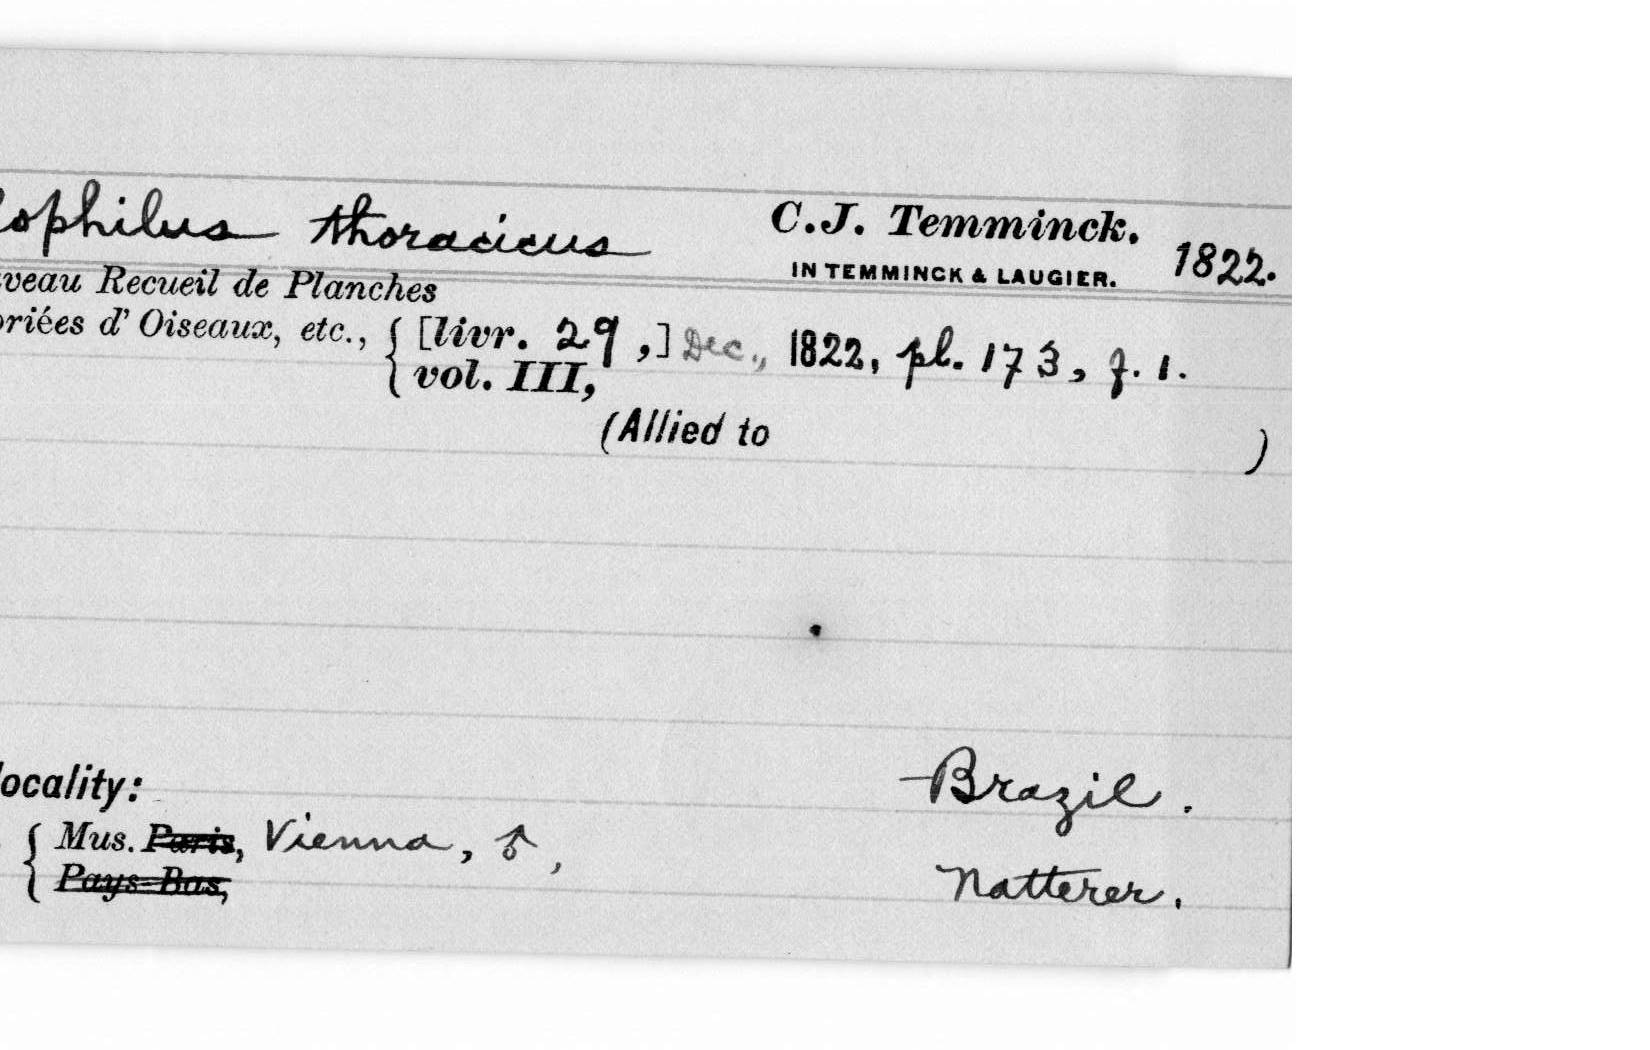 lophilus thoracicus C.J. Temminck. 1822.
IN TEMMINCK & LAUGIER.
veau Recueil de Planches
oriées d' Oiseaux, etc., { [livr. 29,] Dec., 1822, pl. 173, f. 1.
vol. III,
(Allied to )
locality: Brazil.
{ Mus. Paris, Vienna, ♂, Natterer.
Pays-Bas,